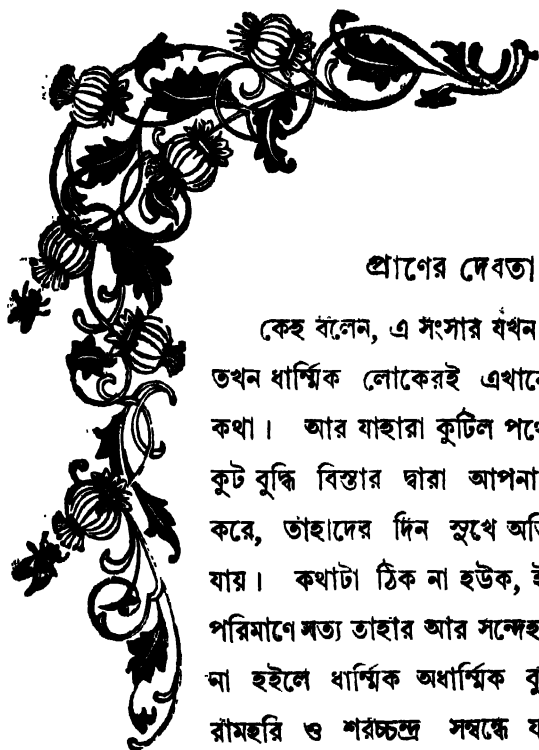 প্রাণের দেবতা
কেহ বলেন, এ সংসার যখন
তখন ধার্ম্মিক লোকেরই এখানে
কথা। আর যাহারা কুটিল পথে
কুট বুদ্ধি বিস্তার দ্বারা আপনা
করে, তাহাদের দিন সুখে অতি
যায়। কথাটা ঠিক না হউক, ই
পরিমাণে সত্য তাহার আর সন্দেহ
না হইলে ধার্ম্মিক অধার্ম্মিক বু
রামহরি ও শরচ্চন্দ্র সম্বন্ধে য